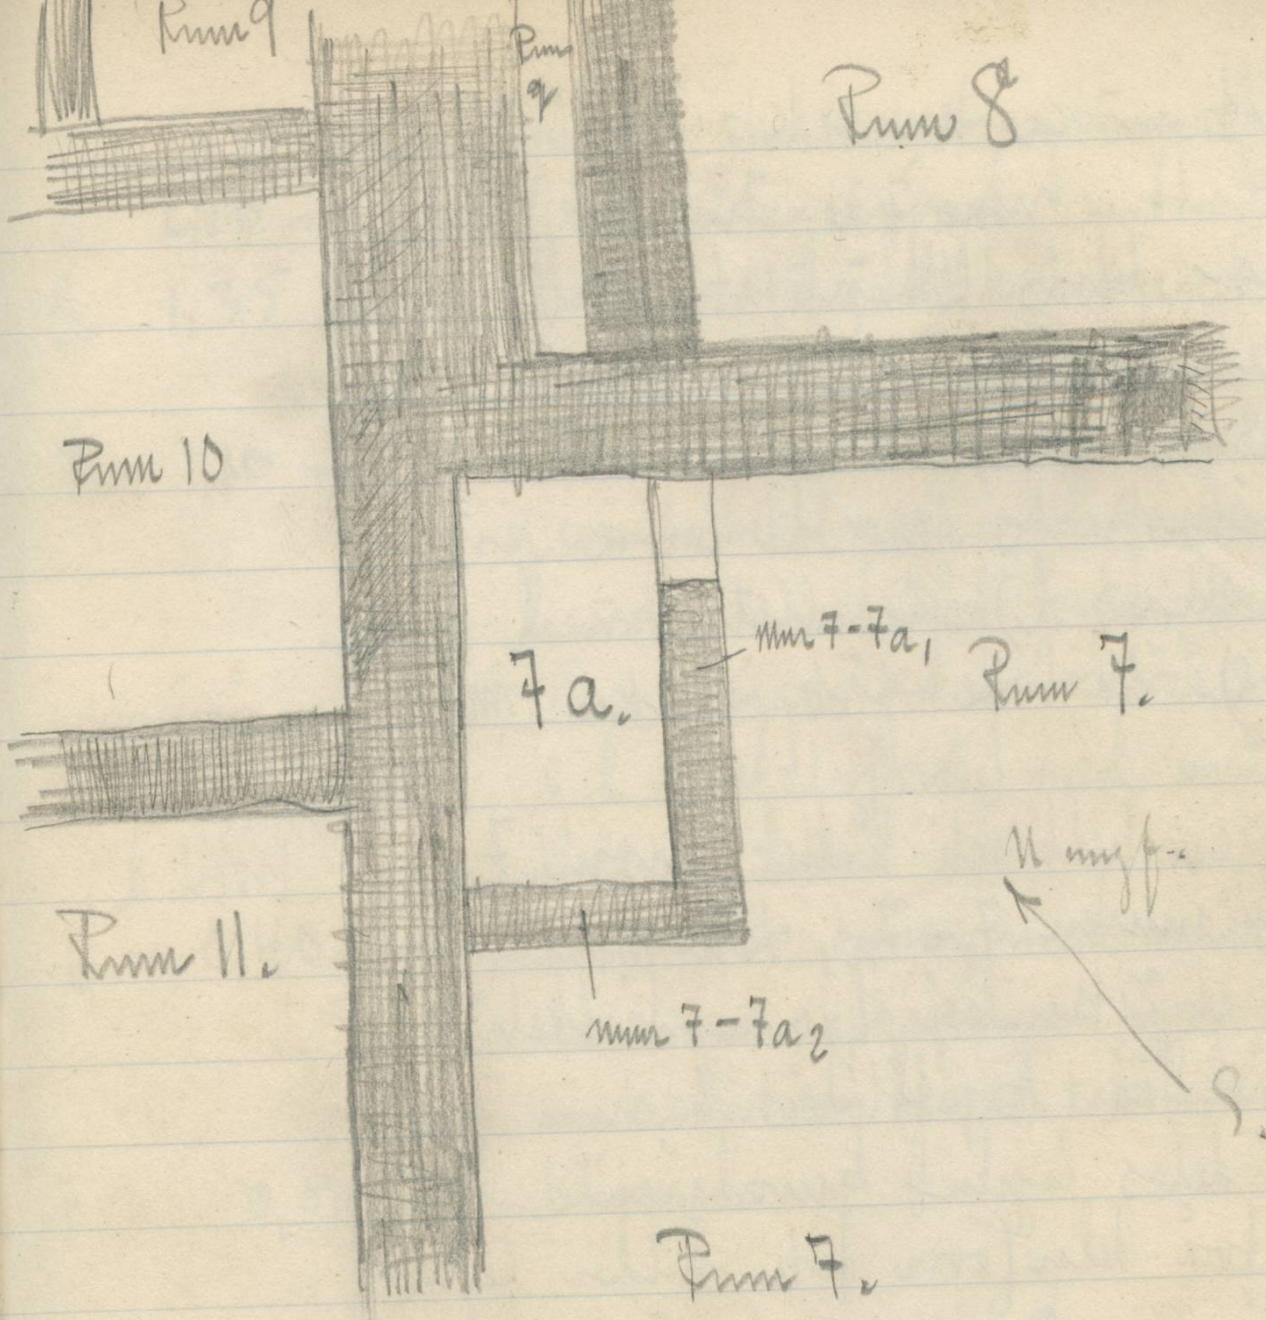 Rum 9
Rum
9
Rum 8
Rum 10
mur 7-7a1
7a.
Rum 7.
N ungf.
Rum 11.
mur 7-7a2
S.
Rum 7.